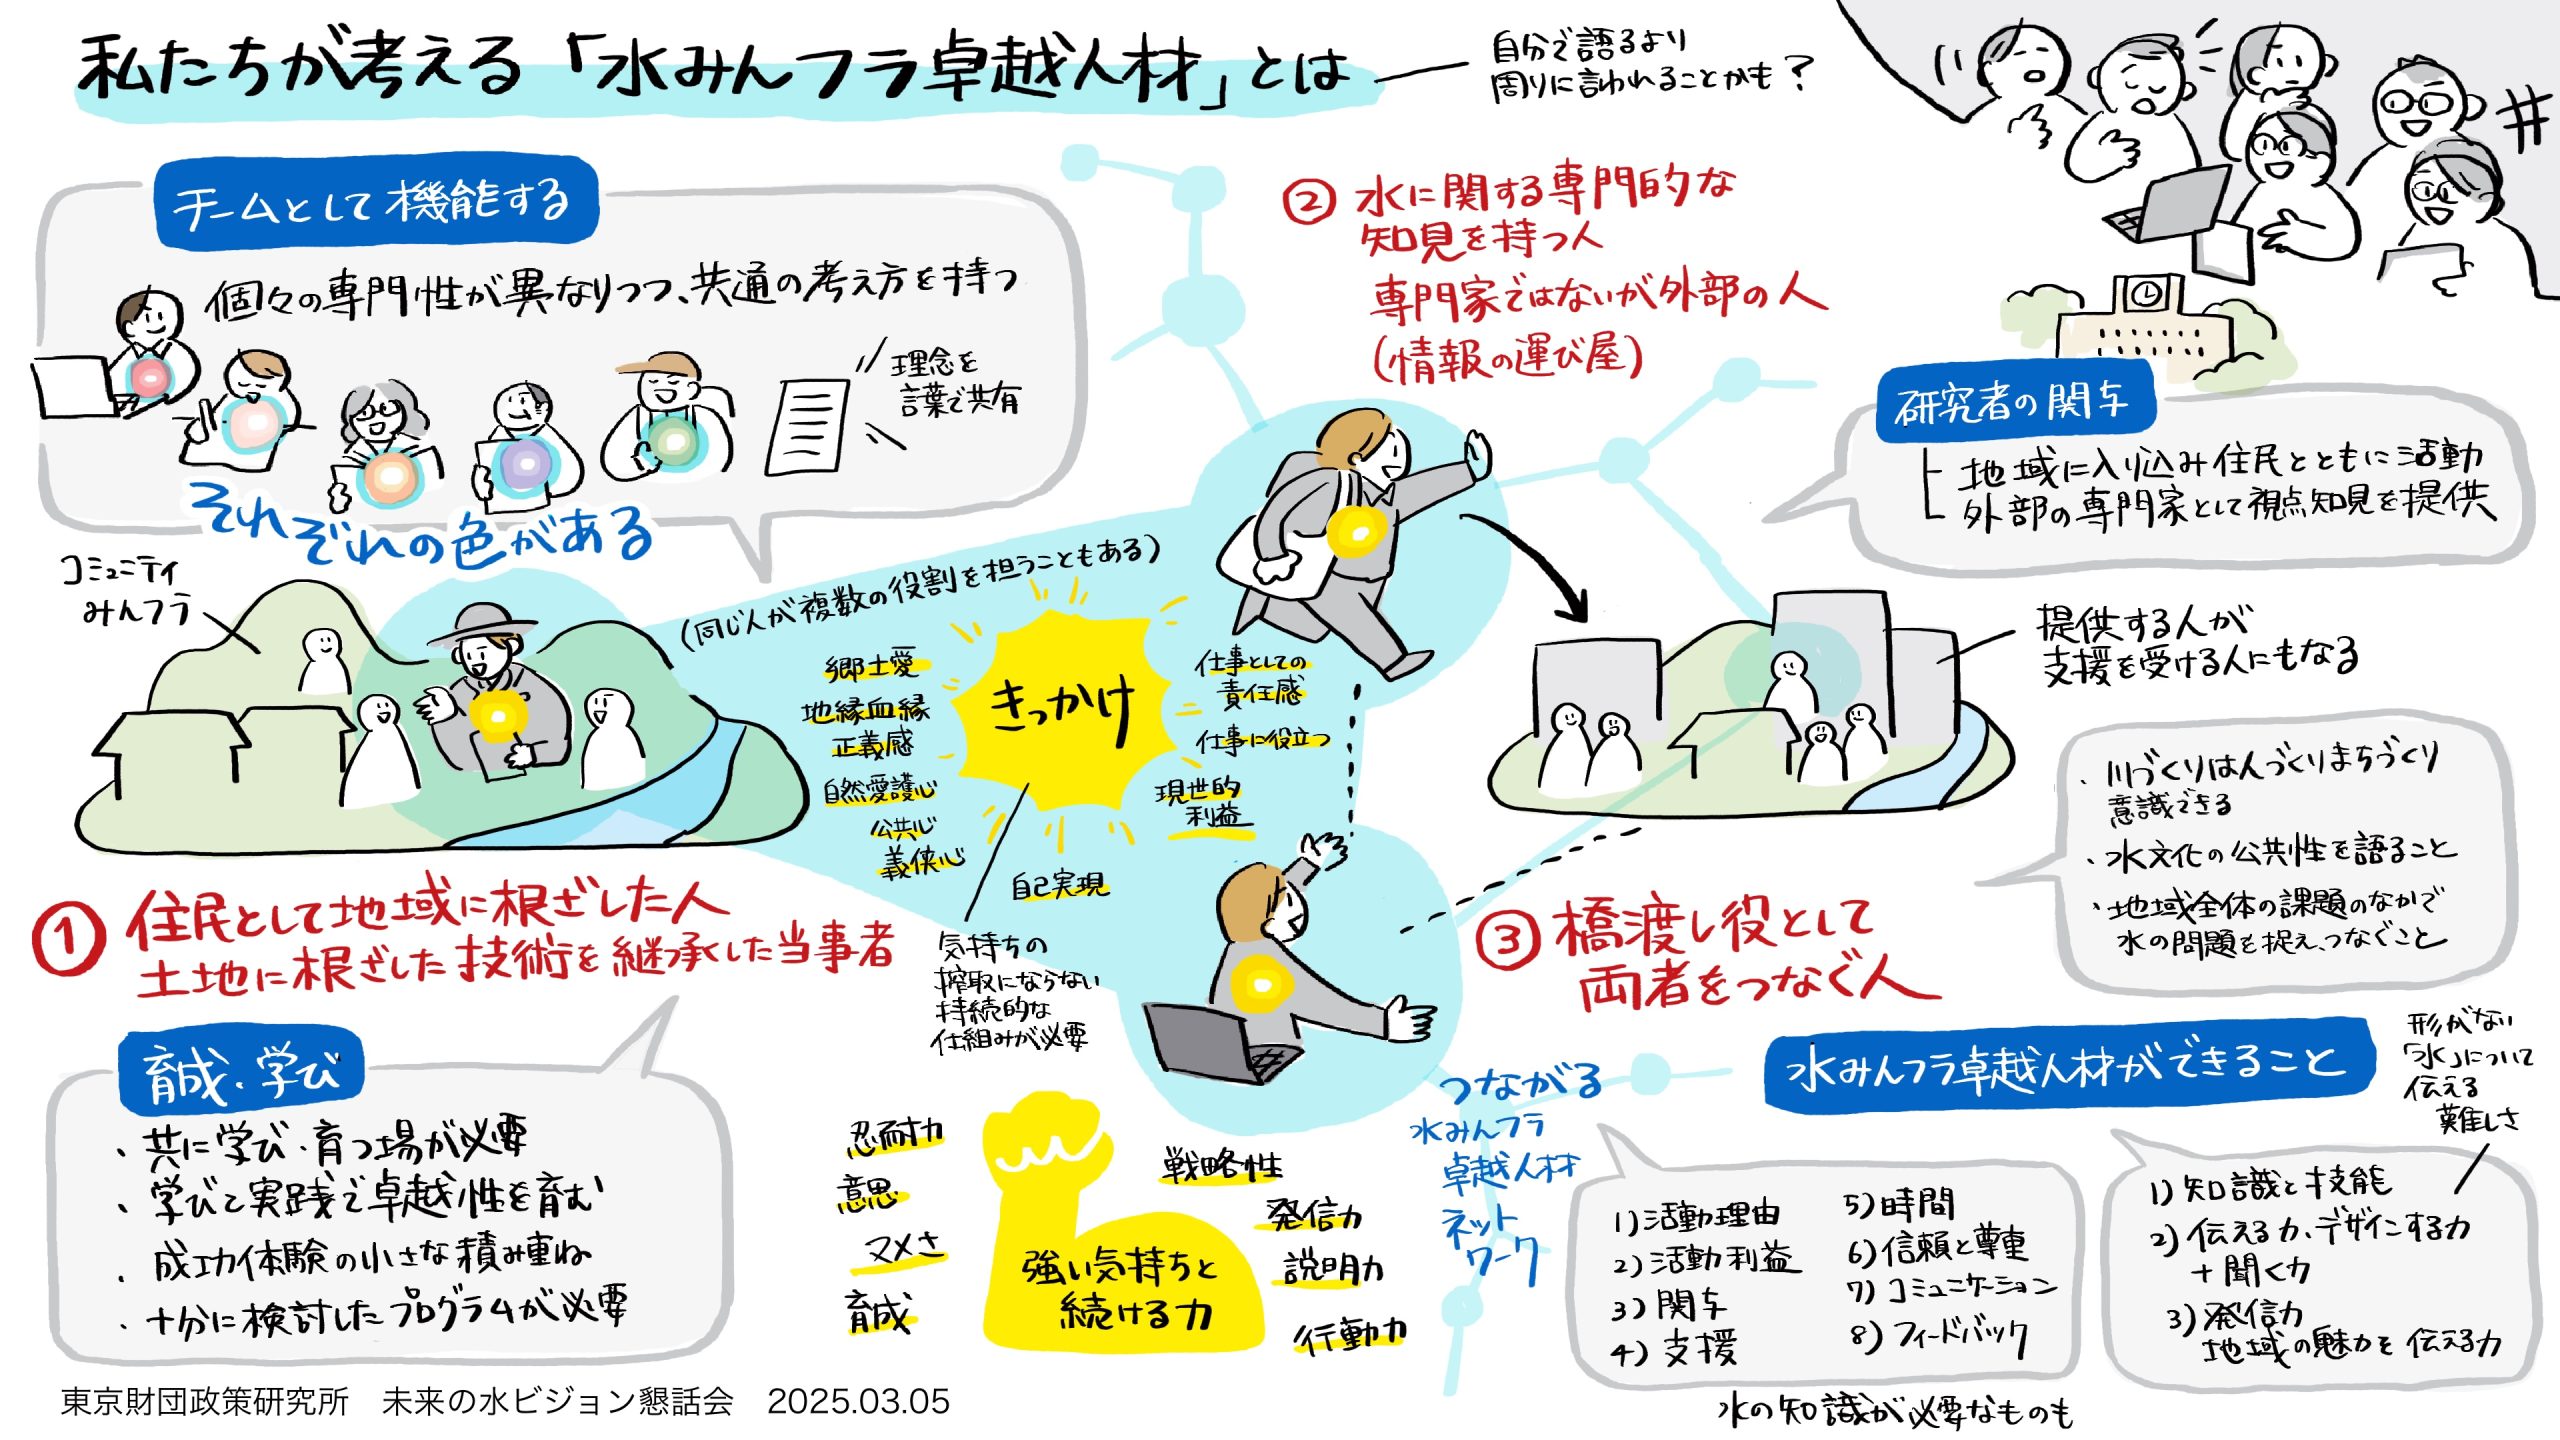 私たちが考える「水みんフラ卓越人材」とは
自分で語るより
周りに言われることかも?
チームとして機能する
個々の専門性が異なりつつ、共通の考え方を持つ
理念を
言葉で共有
それぞれの色がある
② 水に関する専門的な
知見を持つ人
専門家ではないが外部の人
(情報の運び屋)
研究者の関与
地域に入り込み住民とともに活動
外部の専門家として視点知見を提供
コミュニティ
みんフラ
(同じ人が複数の役割を担うこともある)
きっかけ
郷土愛
地縁血縁
正義感
自然愛護心
公共心
義侠心
自己実現
仕事としての
責任感
仕事に役立つ
現世的
利益
気持ちの
搾取にならない
持続的な
仕組みが必要
提供する人が
支援を受ける人にもなる
・川づくりは人づくりまちづくり
意識できる
・水文化の公共性を語ること
・地域全体の課題のなかで
水の問題を捉え、つなぐこと
① 住民として地域に根ざした人
土地に根ざした技術を継承した当事者
③ 橋渡し役として
両者をつなぐ人
育成・学び
・共に学び・育つ場が必要
・学びと実践で卓越性を育む
・成功体験の小さな積み重ね
・十分に検討したプログラムが必要
忍耐力
意思
マメさ
育成
強い気持ちと
続ける力
戦略性
発信力
説明力
行動力
つながる
水みんフラ
卓越人材
ネット
ワーク
水みんフラ卓越人材ができること
形がない
「水」について
伝える
難しさ
1)活動理由
2)活動利益
3)関与
4)支援
5)時間
6)信頼と尊重
7)コミュニケーション
8)フィードバック
1)知識と技能
2)伝える力、デザインする力
+聞く力
3)発信力
地域の魅力を伝える力
水の知識が必要なものも
東京財団政策研究所 未来の水ビジョン懇話会 2025.03.05